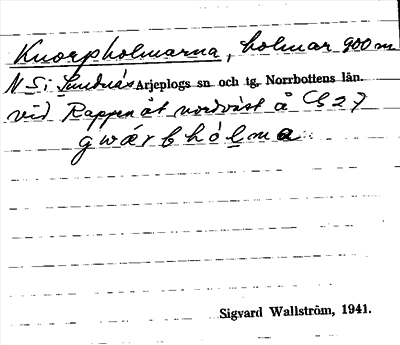 Knorpholmarna, holmar 900 m
N S; Sundnäs Arjeplogs sn och tg, Norrbottens län.
vid Rappen åt nordväst å C 27
gwárbhólma
Sigvard Wallström, 1941.